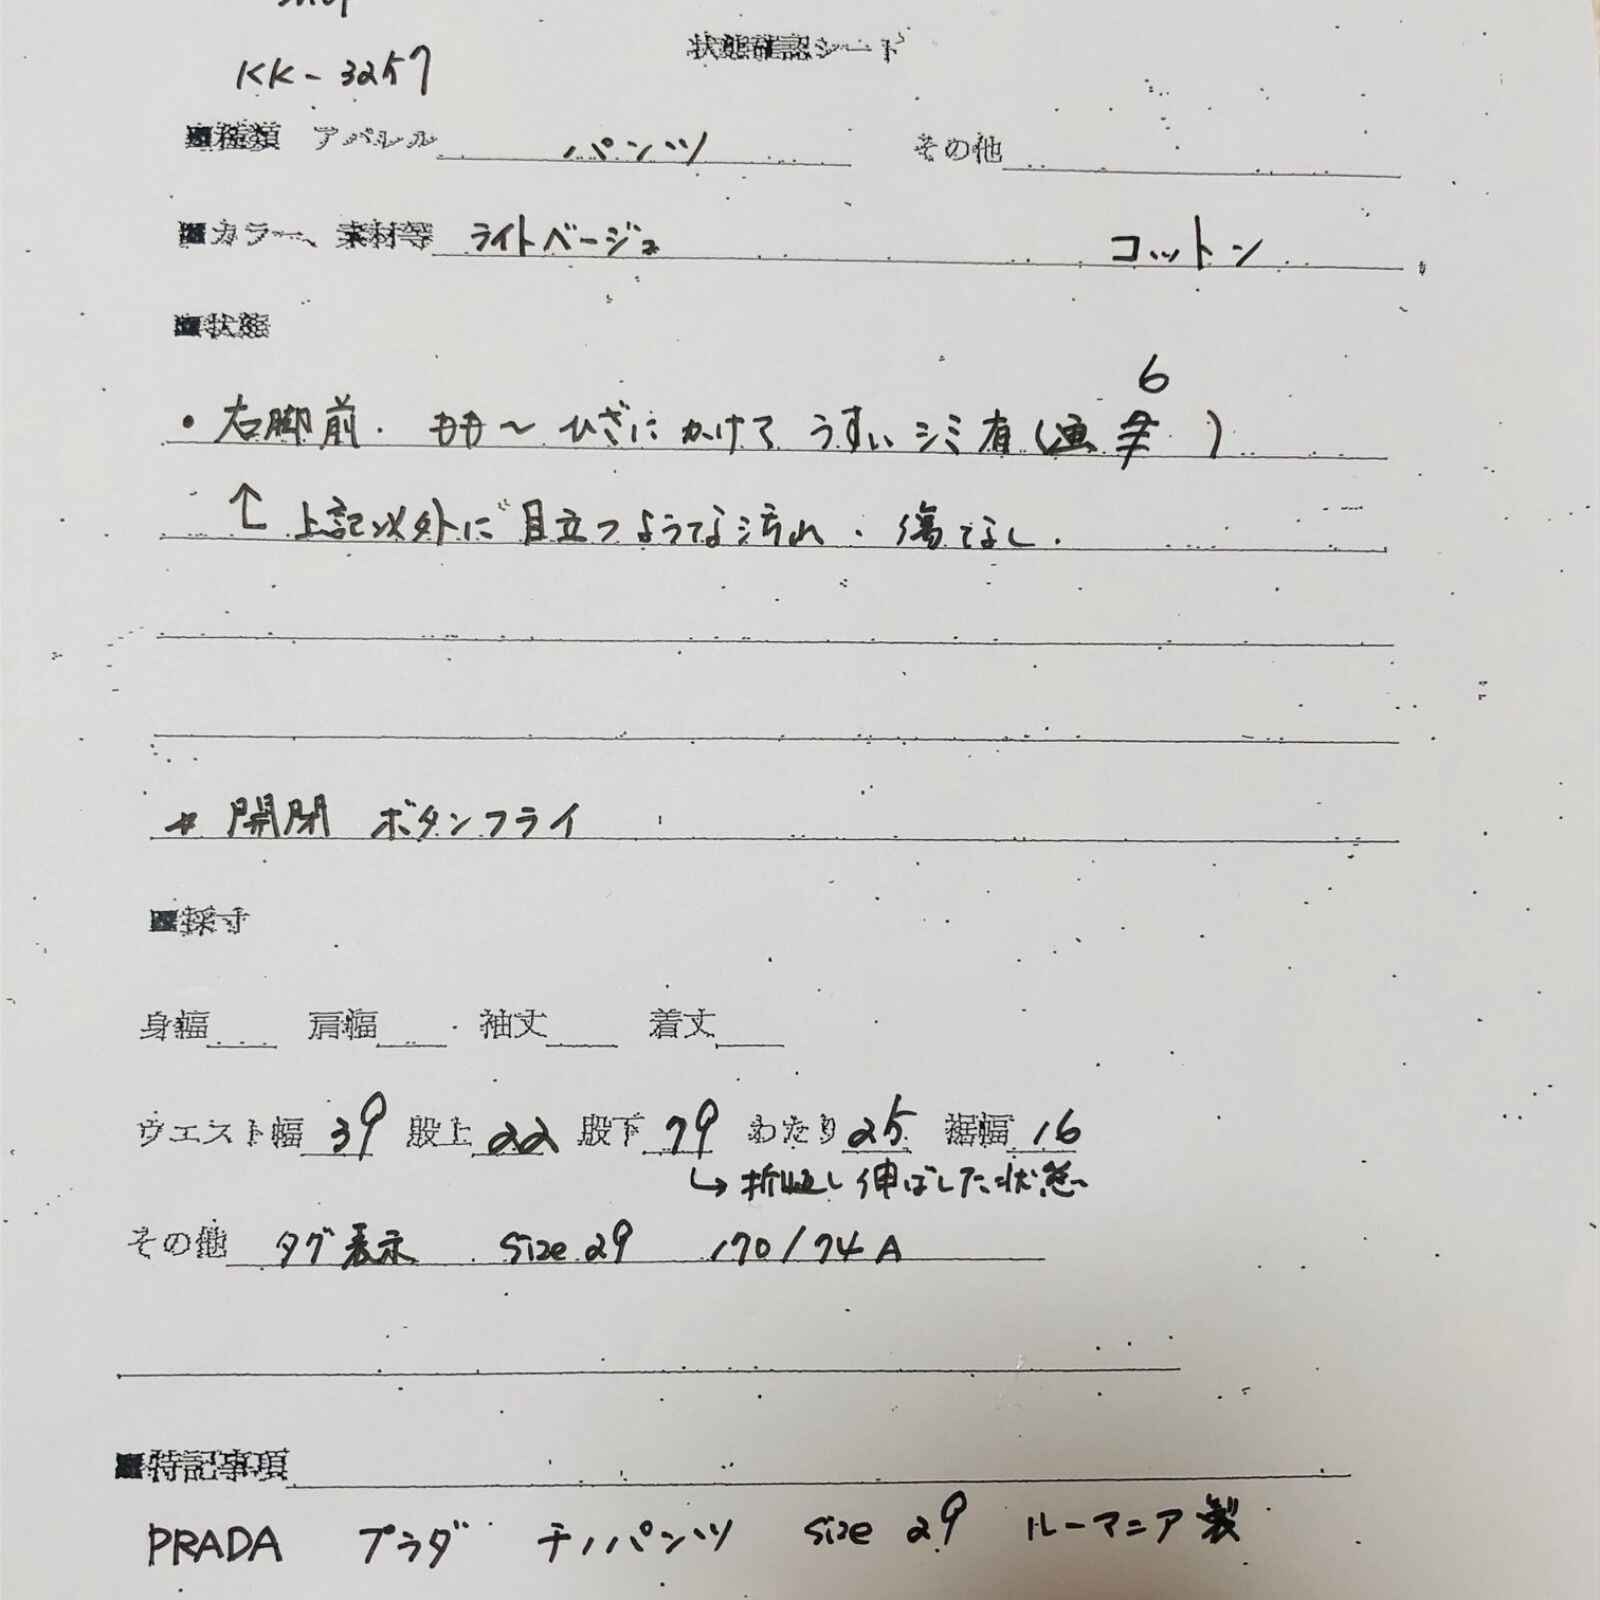 状態確認シート
KK-3257
■種類 アパレル パンツ その他
■カラー、素材等 ライトベージュ コットン
■状態
6
・右脚前. もも〜ひざにかけて うすいシミ有(画 )
↑ 上記以外に目立つような汚れ・傷なし.
* 開閉 ボタンフライ
■採寸
身幅 肩幅 袖丈 着丈
ウエスト幅 39 股上 22 股下 79 わたり 25 裾幅 16
↳ 折返し伸ばした状態
その他 タグ表示 size 29 170/74A
■特記事項
PRADA プラダ チノパンツ size 29 ルーマニア製